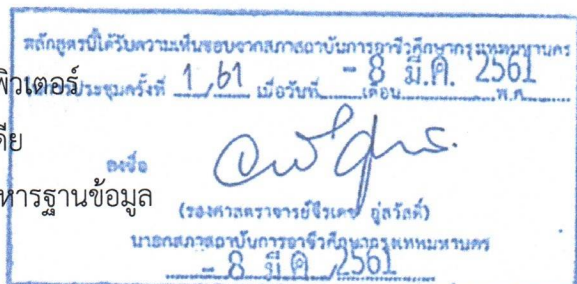 หลักสูตรนี้ได้รับความเห็นชอบจากสภาสถาบันการอาชีวศึกษากรุงเทพมหานคร
พิวเตอร์
ประชุมครั้งที่ 1/61 เมื่อวันที่ - 8 มี.ค. 2561 เดือน พ.ศ.
ดีย
ลงชื่อ
หารฐานข้อมูล
(รองศาสตราจารย์จิรเดช อู่สวัสดิ์)
นายกสภาสถาบันการอาชีวศึกษากรุงเทพมหานคร
- 8 มี.ค. 2561